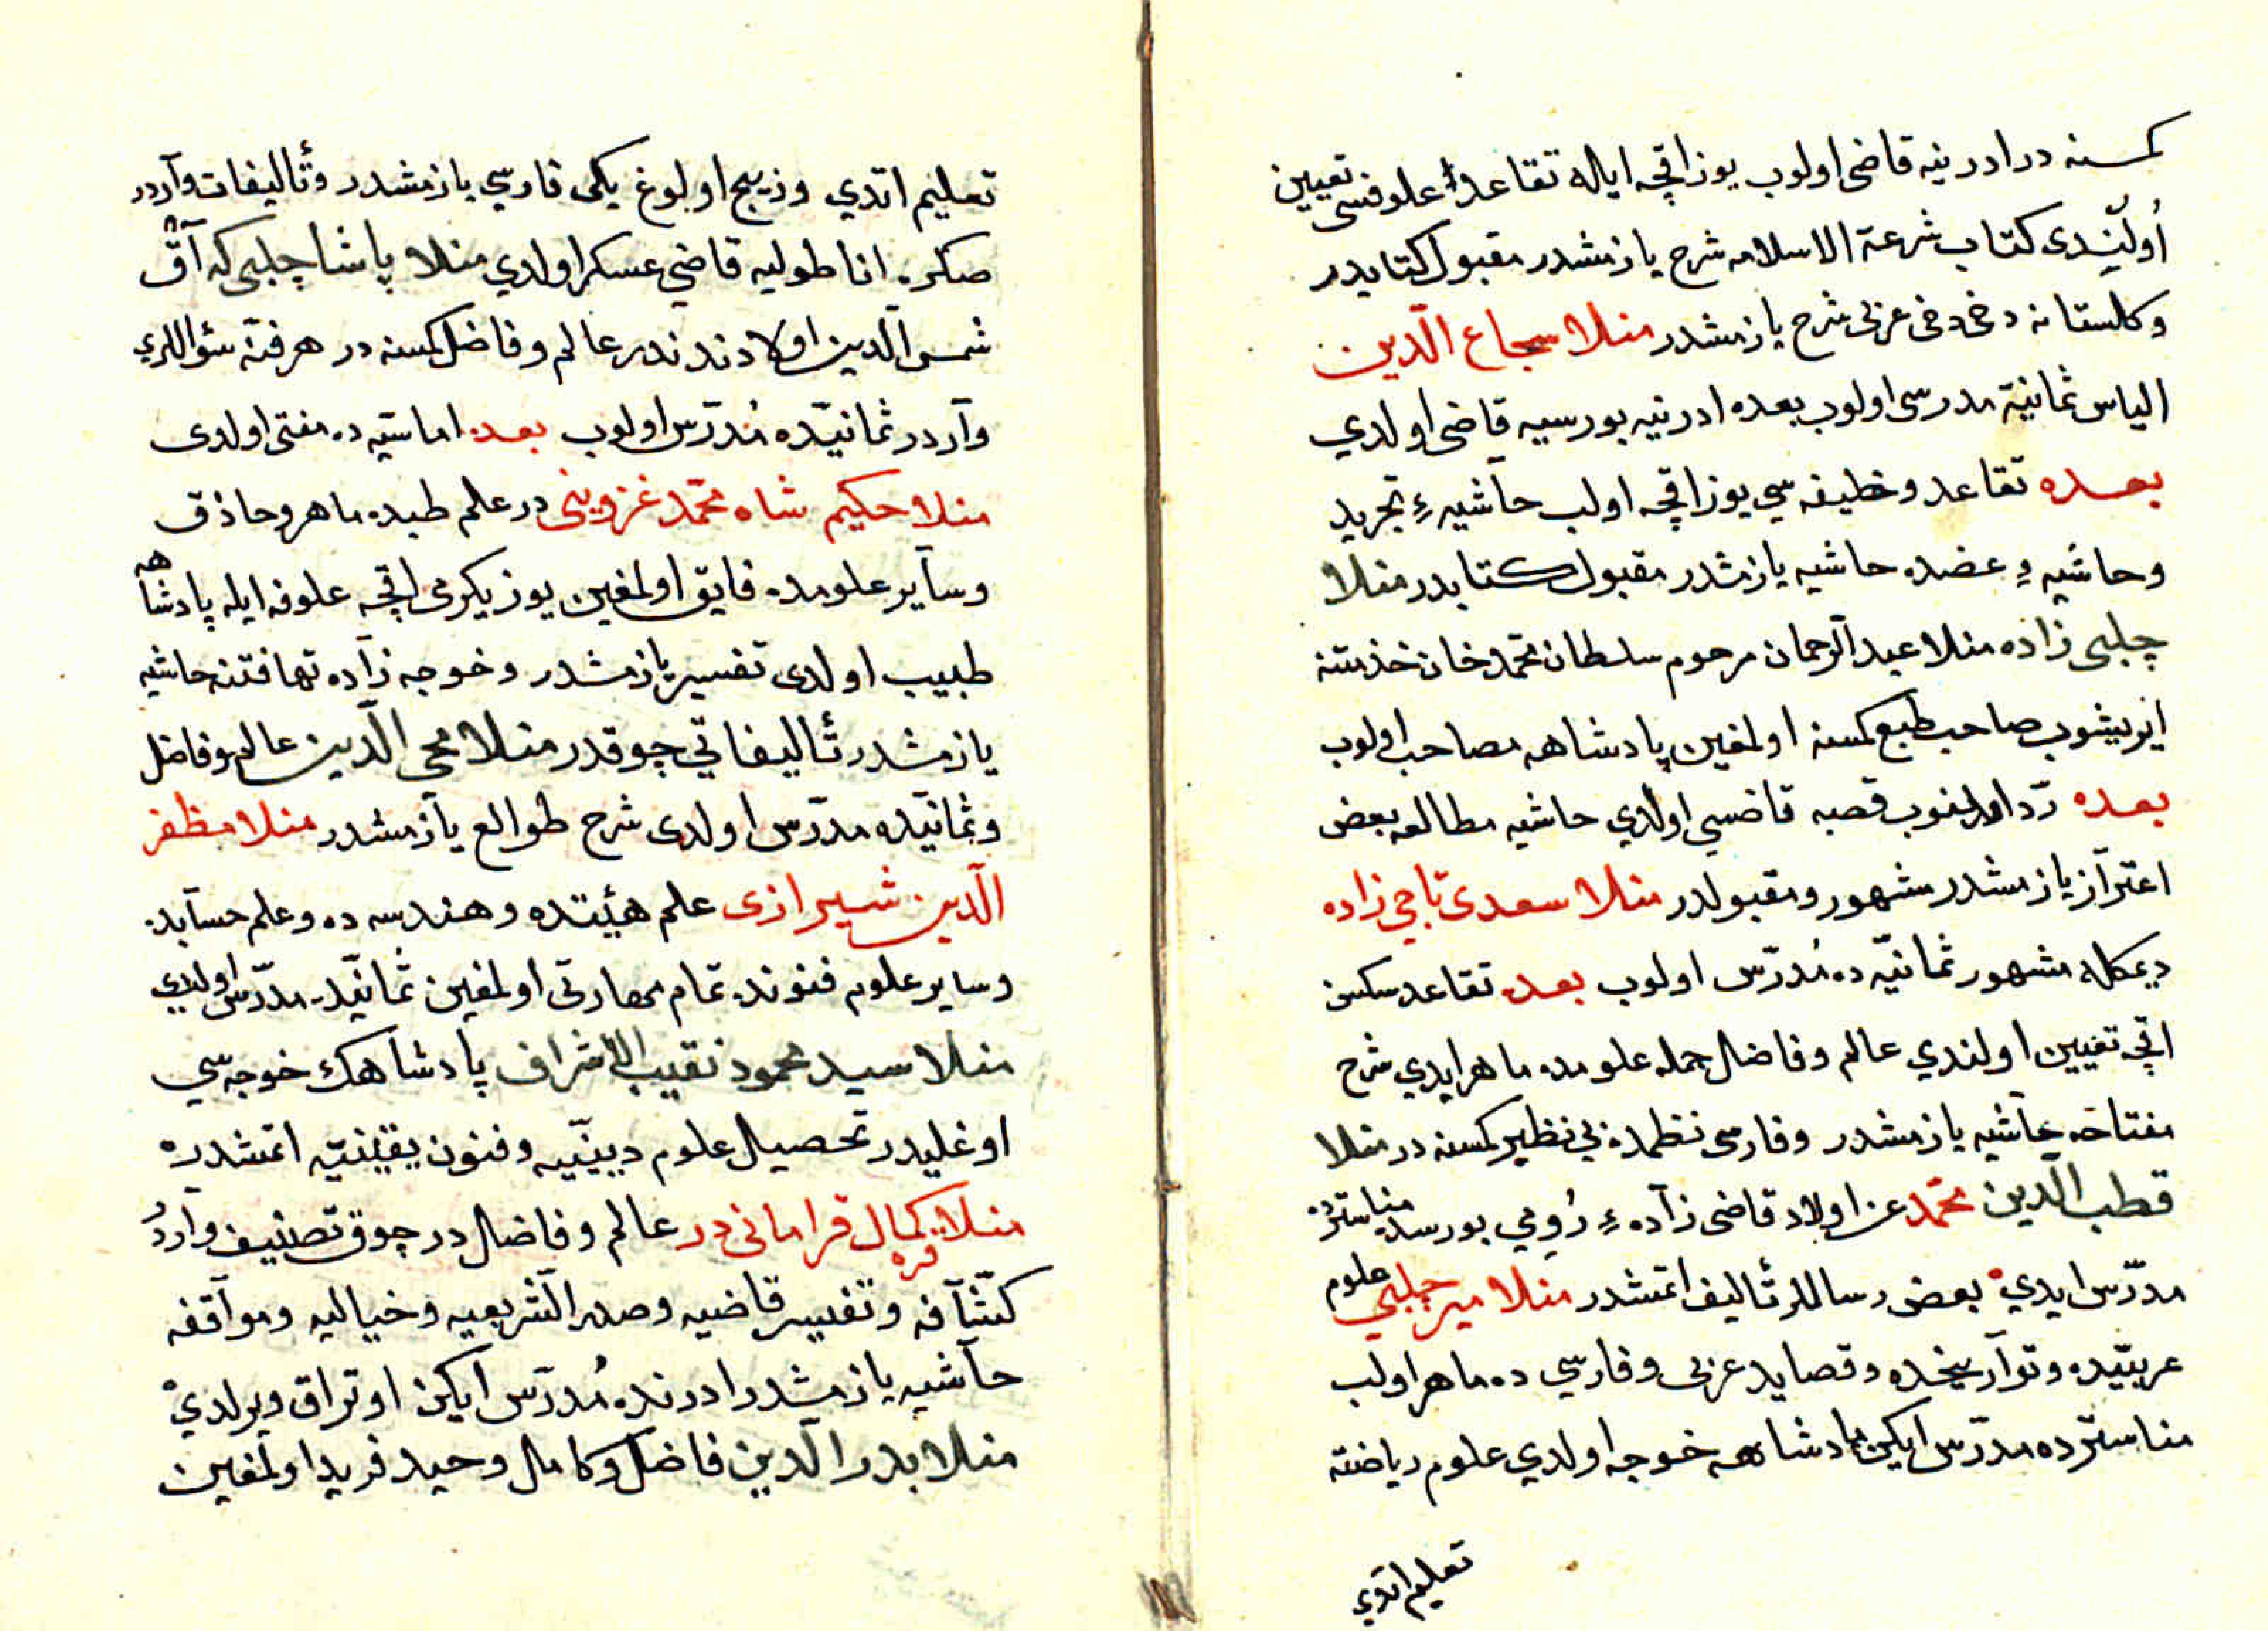 كمسنه در ادرنيه قاضى اولوب يوز اقچه ايله تقاعدا علوفسى تعيين
اُولنّدى كتاب شرعة الاسلامه شرح يازمشدر مقبول كتابدر
وكلستانه دخى دخى عربى شرح يازمشدر منلا سجاع الدّين
الياس ثمانيّة مدرسى اولوب بعده ادرنيه بورسيه قاضى اولدي
بعده تقاعد وظيفه سي يوز اقچه اولب حاشيهء تجريد
وحاشيهء عضده حاشيه يازمشدر مقبول كتابدر منلا
چلبى زاده منلا عبد الرّحمان مرحوم سلطان محمّد خان خذمتنه
ايريشوب صاحب طبع كمسنه اولمغين پادشاهه مصاحب اولوب
بعده ردّ اولنوب قصبه قاضسي اولدي حاشيه مطالعه بعض
اعترآز يازمشدر مشهور ومقبولدر منلا سعدى تاجي زاده
ديمكله مشهور ثمانيّه ده مُدرّس اولوب بعده تقاعد سكسن
اقچه تعيين اولندي عالم وفاضال جمله علومده ماهر ايدي شرح
مفتاحه حاشيه يازمشدر وفارسى نظمده بى نظير كمسنه در منلا
قطب الدّين محمّد عن اولاد قاضى زآدهء رُومي بورسده مناسترده
مدرّس ايدي بعض رساللر تأليف اتمشدر منلا مير چلبي علوم
عربيّده وتوآريخده وقصايد عربى وفارسي ده ماهر اولب
مناسترده مدرّس ايكن پادشاهه خوجه اولدي علوم رياضته
تعليم اتدي
تعليم اتدي وزيج اولوغ بكى فارسي يازمشدر وتأليفات وآردر
صكره اناطوليه قاضي عسكر اولدي منلا پاشا چلبى كه آق
شمس الدّين اولادندندر عالم وفاضل كمسنه در هر فنّه سؤاللري
وآردر ثمانيّده مُدرّس اولوب بعده اماسيّه ده مفتى اولدى
منلا حكيم شاه محمّد غزوينى در علم طبده ماهر وحاذق
وسآير علومده فايق اولمغين يوز يكرمى اقچه علوفه ايله پادشاهه
طبيب اولدى تفسير يازمشدر وخوجه زآده تهافتنه حاشيه
يازمشدر تأليفاتي چوقدر منلا محي الدّين عالم وفاضل
وثمانيّده مدرّس اولدى شرح طوالع يازمشدر منلا مظفر
الدّين شيرازى علم هيئتده وهندسه ده وعلم حسآبده
وساير علوم فنونده تمام مهارتى اولمغين ثمانيّده مدرّس اولدي
منلا سيد محمود نقيب الاشراف پادشاهك خوجه سي
اوغليدر تحصيل علوم دينيّيه وفنون يقينيّه اتمشدره
منلا قره كمال قرامانى در عالم وفاضال در چوق تصنيف وآردُ
كشّآفه وتفسير قاضيه وصدر الشّريعيه وخياليه وموآقفه
حآشيه يازمشدر ادرنده مُدرّس ايكن اوتراق ويرلدي
منلا بدر الدّين فاضل وكامال وحيد فريد اولمغين